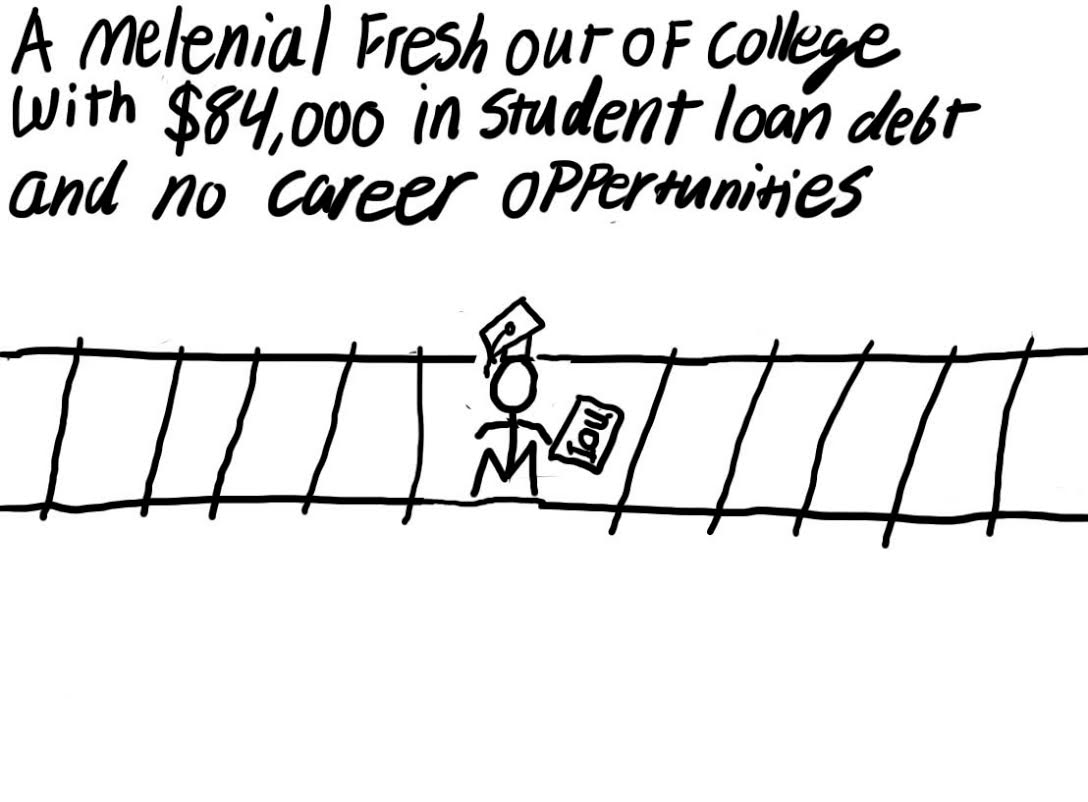 A Melenial Fresh out of college
with $84,000 in student loan debt
and no career oppertunities
IOU